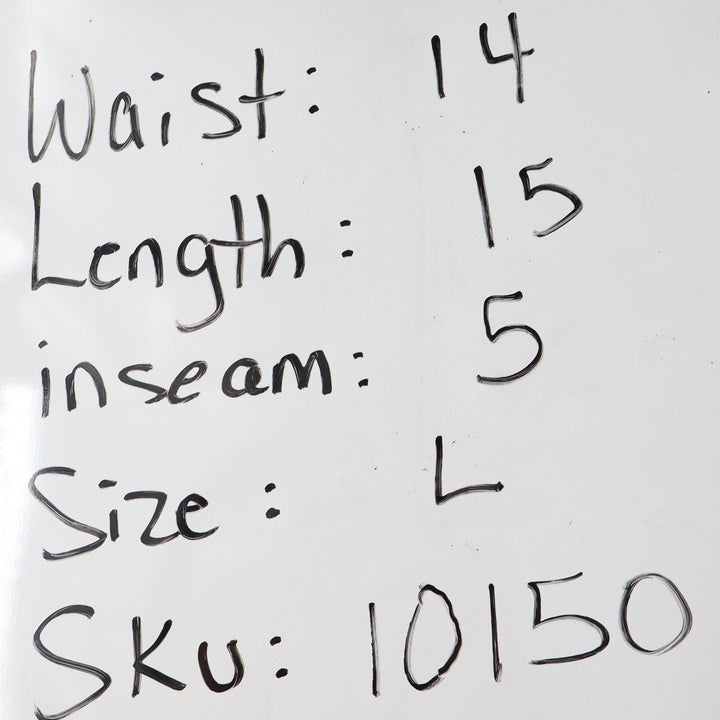 Waist: 14
Length: 15
inseam: 5
Size: L
SKU: 10150